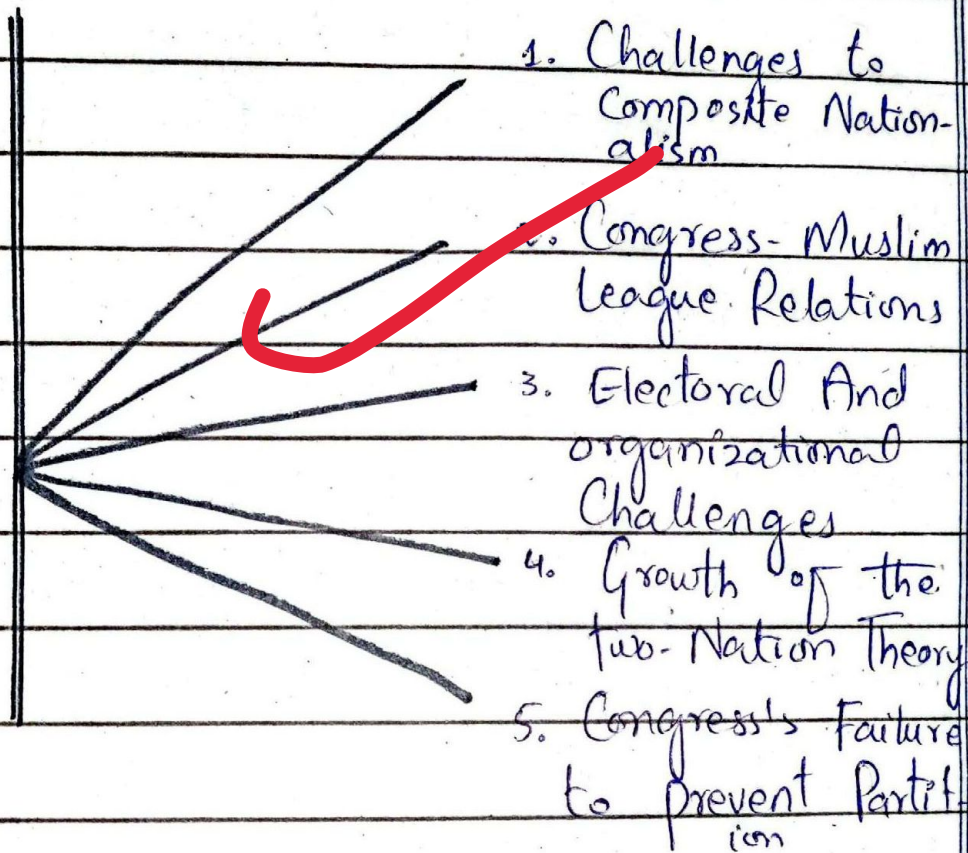 1. Challenges to
Composite Nation-
alism
2. Congress- Muslim
League Relations
3. Electoral And
organizational
Challenges
4. Growth of the
two- Nation Theory
5. Congress's Failure
to prevent Partit-
ion